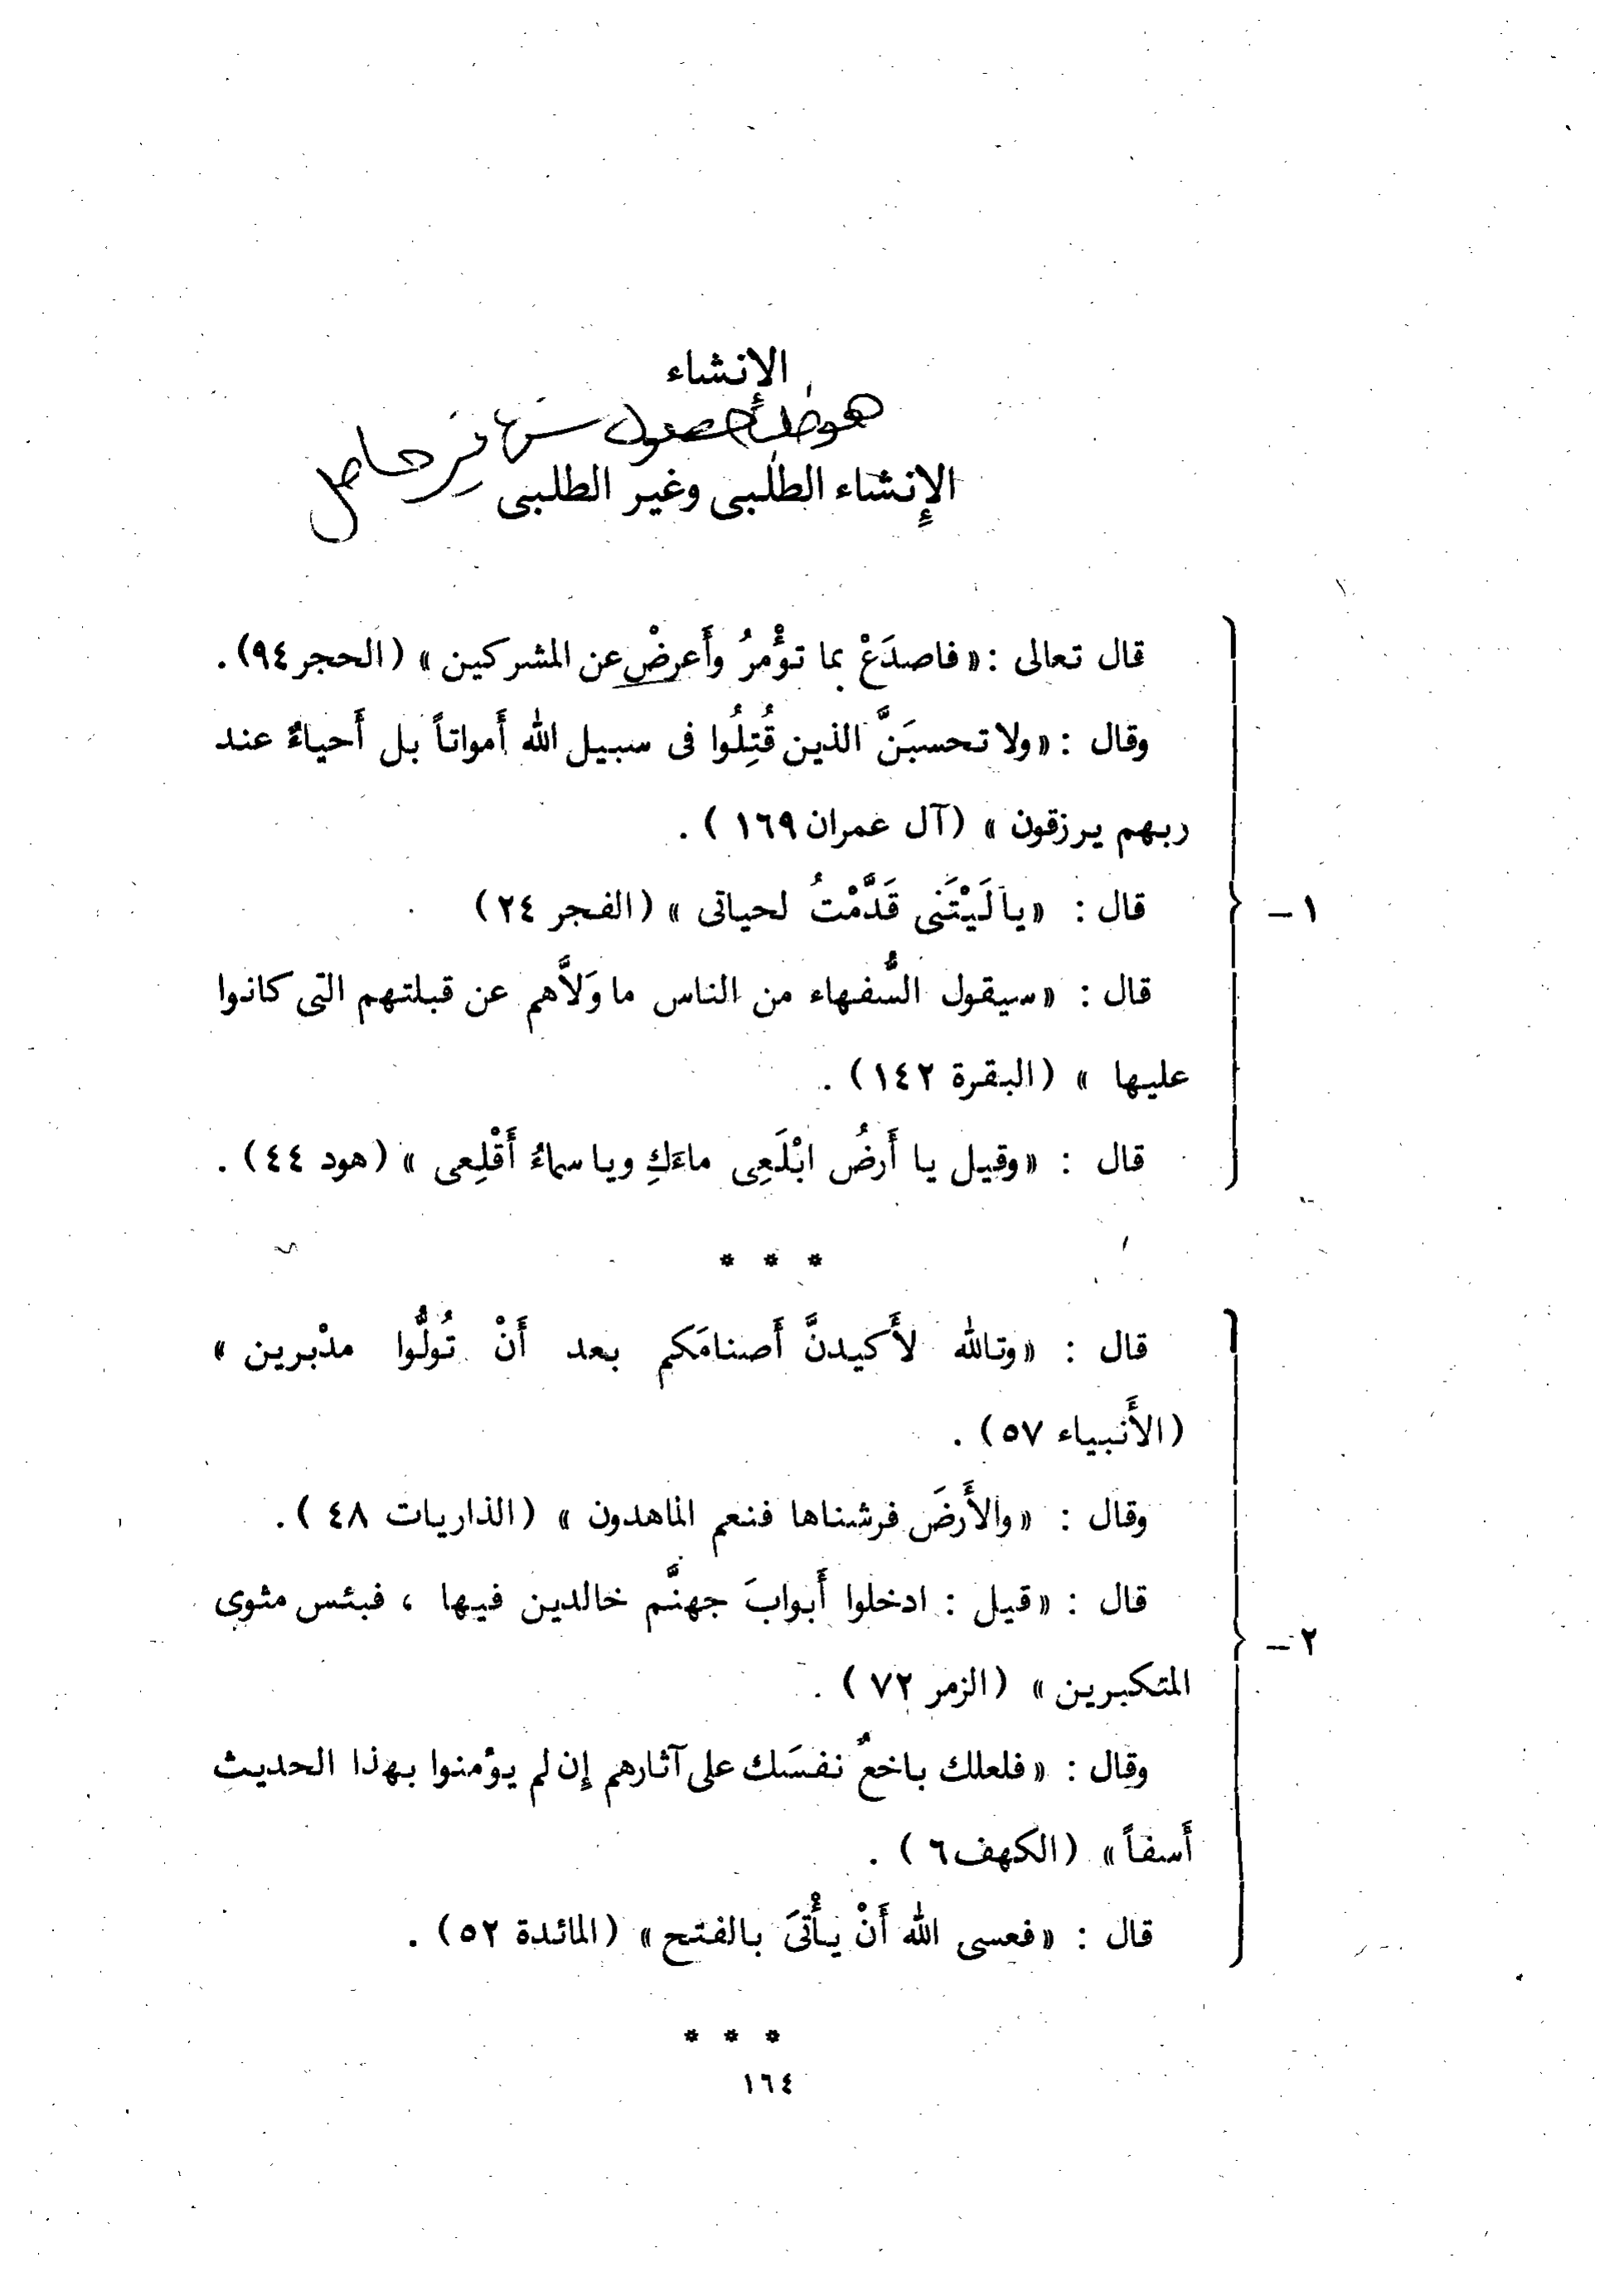 الإِنشاء
هو طلب حصول
الإِنشاء الطلبى وغير الطلبى
قال تعالى : « فاصدَعْ بما تؤْمرُ وأَعرضْ عن المشركين » (الحجر ٩٤) .
وقال : « ولا تحسبَنَّ الذين قُتِلُوا فى سبيل الله أَمواتاً بل أَحياءٌ عند
ربهم يرزقون » (آل عمران ١٦٩ ) .
١ –
قال : « يا لَيْتَنى قَدَّمْتُ لحياتى » (الفجر ٢٤)
قال : « سيقول السُّفهاء من الناس ما وَلاَّهم عن قبلتهم التى كانوا
عليها » (البقرة ١٤٢) .
قال : « وقيل يا أَرضُ ابْلَعِى ماءَكِ ويا سماءُ أَقْلِعى » (هود ٤٤) .
* * *
قال : « وتالله لأَكيدنَّ أَصنامَكم بعد أَنْ تُولُّوا مدْبرين »
(الأَنبياء ٥٧) .
وقال : « والأَرضَ فرشناها فنعم الماهدون » (الذاريات ٤٨ ) .
قال : « قيل : ادخلوا أَبوابَ جهنَّم خالدين فيها ، فبئس مثوى
٢ –
المتكبرين » (الزمر ٧٢ ) .
وقال : « فلعلك باخعٌ نفسَك على آثارهم إِن لم يؤمنوا بهذا الحديث
أَسفاً » (الكهف ٦ ) .
قال : « فعسى الله أَنْ يأْتىَ بالفتح » (المائدة ٥٢) .
* * *
١٦٤